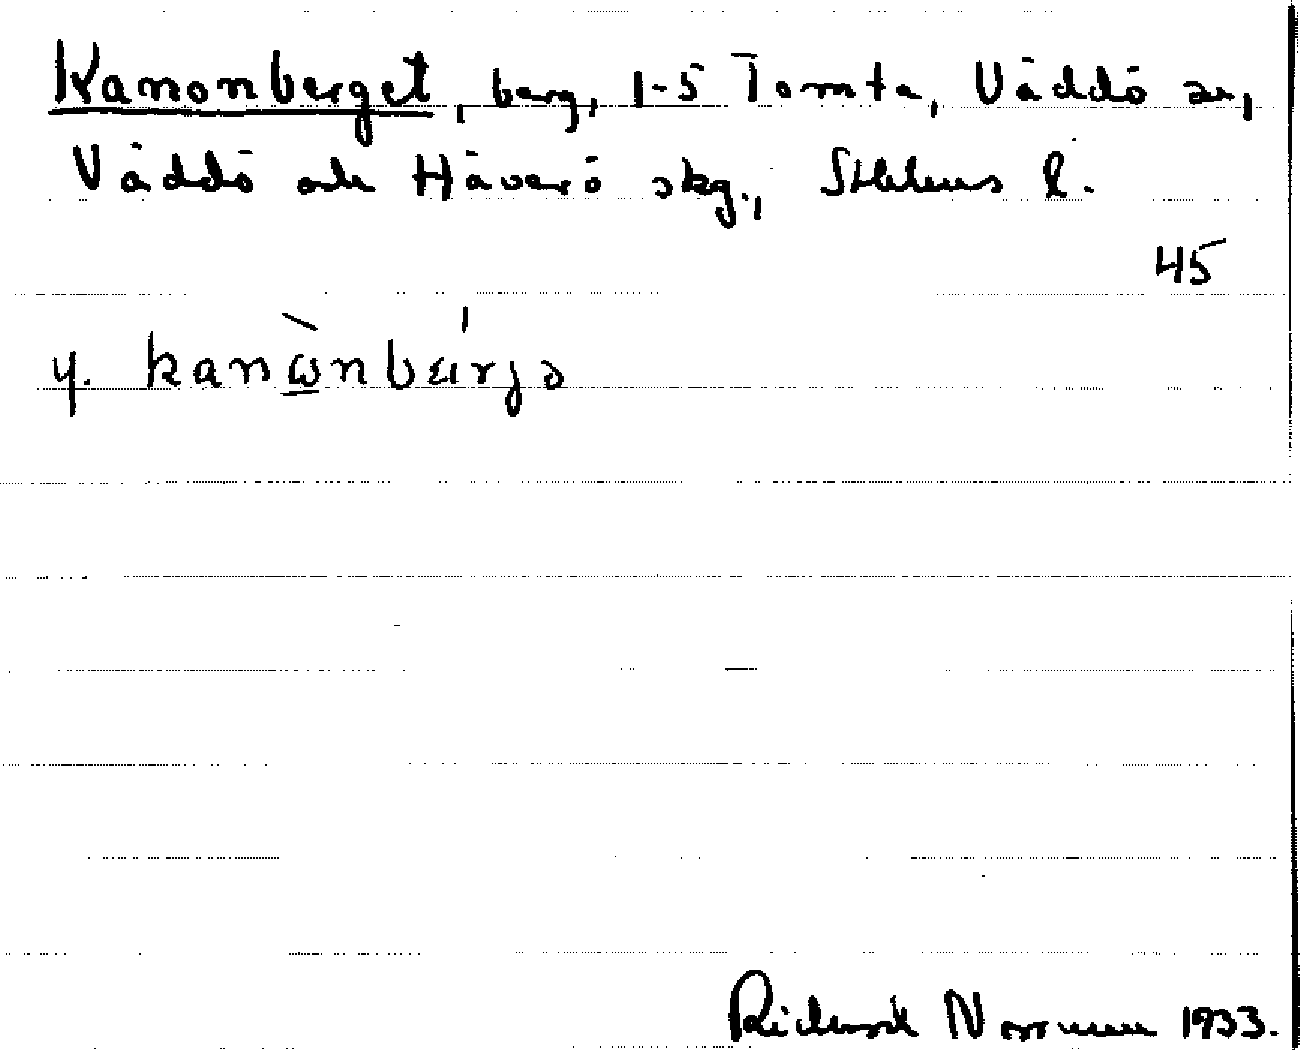 Kanonberget, berg, 1-5 Tomta, Väddö sn,
Väddö och Häverö skg., Sthlms l.
45
y. kanὼnbärjə
Richard Norrman 1933.